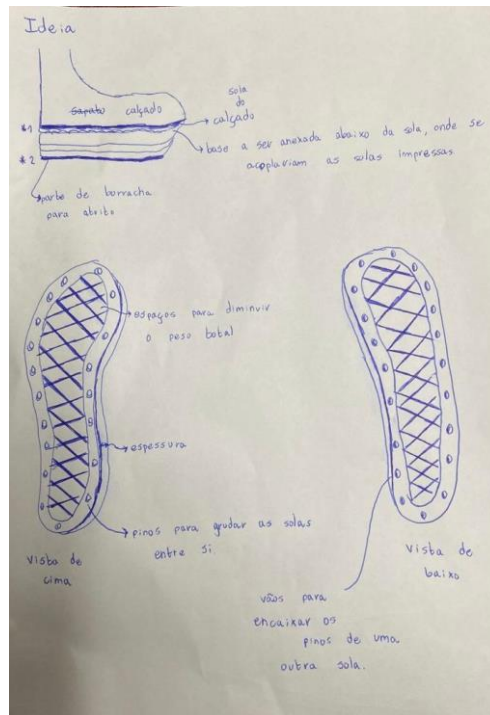 Ideia
sapato calçado
sola
do
calçado
*1
base a ser anexada abaixo da sola, onde se
acoplariam as solas impressas
*2
parte de borracha
para atrito
espaços para diminuir
o peso total
espessura
pinos para grudar as solas
entre si.
vista de
cima
vista de
baixo
vãos para
encaixar os
pinos de uma
outra sola.